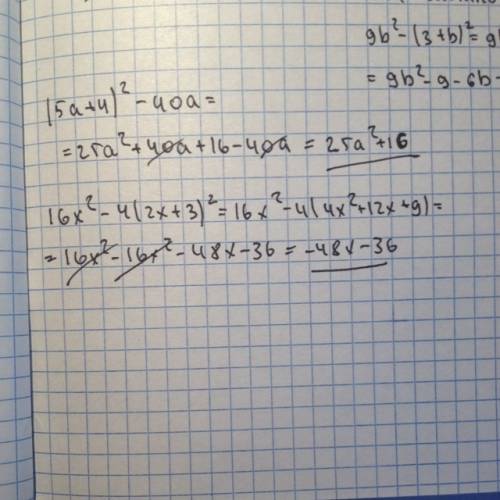 9b² - (3+b)² = 9
= 9b² - 9 - 6b -
(5a+4)² - 40a =
= 25a² + 40a + 16 - 40a = 25a² + 16
16x² - 4(2x+3)² = 16x² - 4(4x² + 12x + 9) =
= 16x² - 16x² - 48x - 36 = -48x - 36